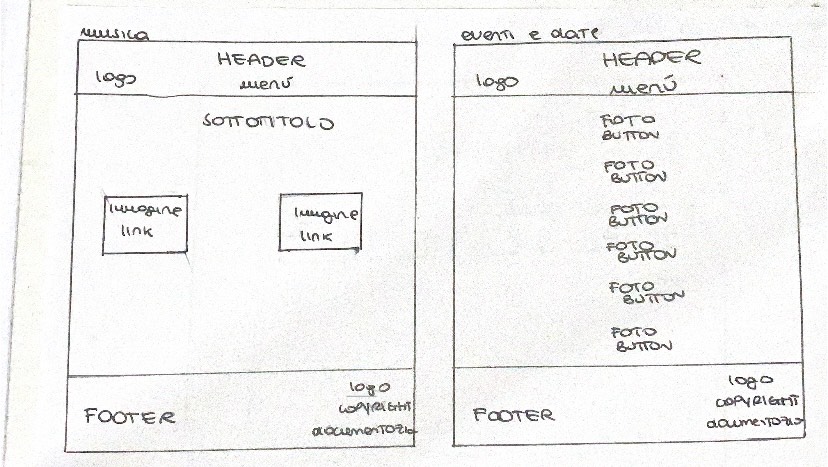 musica
HEADER
logo
menú
SOTTOTITOLO
imagine
link
imagine
link
FOOTER
logo
COPYRIGHT
eventi e date
HEADER
logo
menú
FOTO
BUTTON
FOTO
BUTTON
FOTO
BUTTON
FOTO
BUTTON
FOTO
BUTTON
FOTO
BUTTON
FOOTER
logo
COPYRIGHT